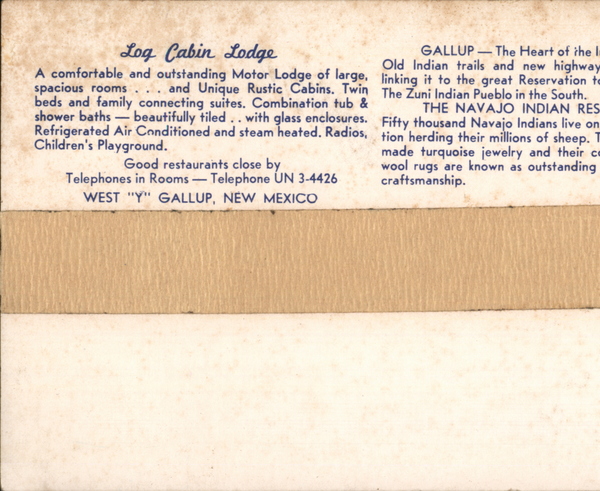 Log Cabin Lodge
A comfortable and outstanding Motor Lodge of large,
spacious rooms . . . and Unique Rustic Cabins. Twin
beds and family connecting suites. Combination tub &
shower baths — beautifully tiled . . with glass enclosures.
Refrigerated Air Conditioned and steam heated. Radios,
Children's Playground.
Good restaurants close by
Telephones in Rooms — Telephone UN 3-4426
WEST "Y" GALLUP, NEW MEXICO
GALLUP — The Heart of the
Old Indian trails and new highway
linking it to the great Reservation
The Zuni Indian Pueblo in the South.
THE NAVAJO INDIAN RES
Fifty thousand Navajo Indians live on
tion herding their millions of sheep.
made turquoise jewelry and their
wool rugs are known as outstanding
craftsmanship.